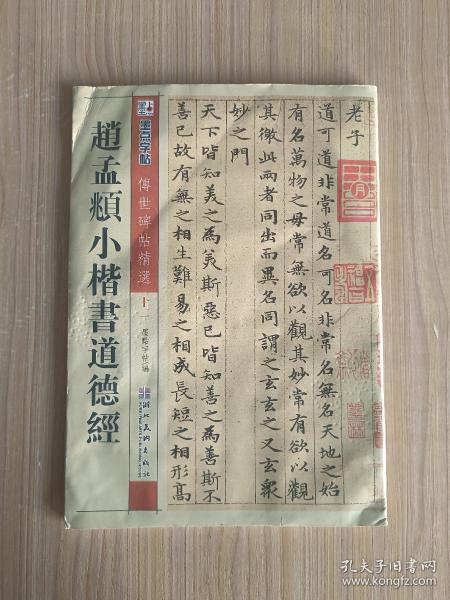 趙孟頫小楷書道德經
墨点字帖
傳世碑帖精選
墨點字帖 編
湖北美術出版社
老子
道可道非常道名可名非常名無名天地之始
有名萬物之母常無欲以觀其妙常有欲以觀
其徼此兩者同出而異名同謂之玄玄之又玄衆
妙之門
天下皆知美之為美斯惡已皆知善之為善斯不
善已故有無之相生難易之相成長短之相形高
孔夫子旧书网
www.kongfz.com